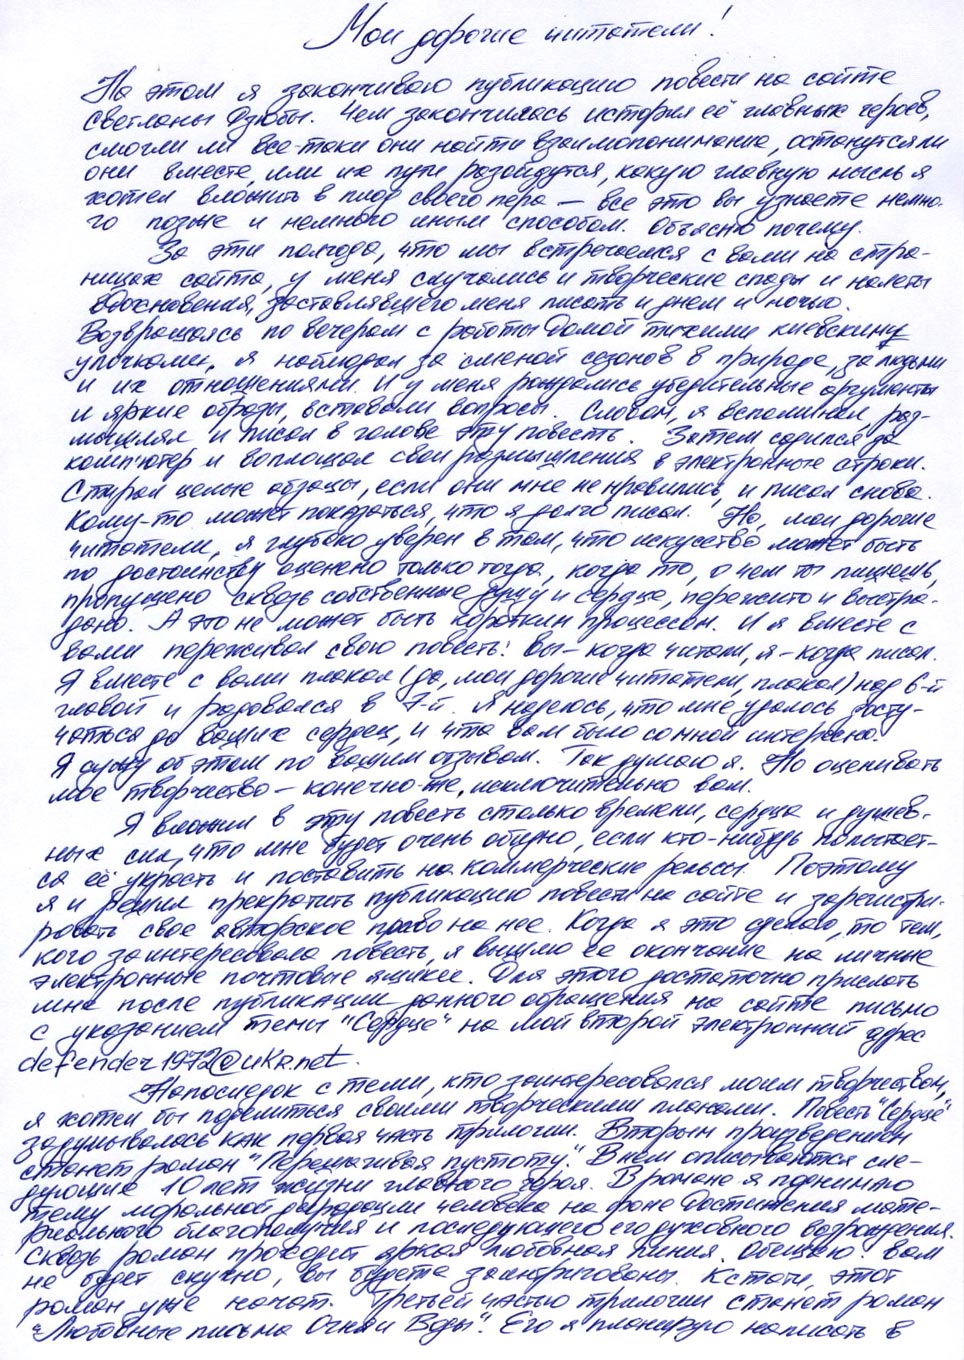 Мои дорогие читатели!
На этом я заканчиваю публикацию повести на сайте
Светланы Дзюбы. Чем закончилась история её главных героев,
смогли ли все-таки они найти взаимопонимание, останутся ли
они вместе, или их пути разойдутся, какую главную мысль я
хотел вложить в плод своего пера — все это вы узнаете немно-
го позже и немного иным способом. Объясню почему.
За эти полгода, что мы встречаемся с вами на стра-
ницах сайта, у меня случались и творческие спады и налеты
вдохновения, заставлявшего меня писать и днем и ночью.
Возвращаясь по вечерам с работы домой тихими киевскими
улочками, я наблюдал за сменой сезонов в природе, за людьми
и их отношениями. И у меня рождались убедительные аргументы
и яркие образы, вставали вопросы. Словом, я вспоминал, раз-
мышлял и писал в голове эту повесть. Затем садился за
комп'ютер и воплощал свои размышления в электронные строки.
Стирал целые абзацы, если они мне не нравились, и писал снова.
Кому-то может показаться, что я долго писал. Но, мои дорогие
читатели, я глубоко уверен в том, что искусство может быть
по достоинству оценено только тогда, когда то, о чем ты пишешь,
пропущено сквозь собственные душу и сердце, пережито и выстра-
дано. А это не может быть коротким процессом. И я вместе с
вами переживал свою повесть: вы – когда читали, я – когда писал.
Я вместе с вами плакал (да, мои дорогие читатели, плакал) над 6-й
главой и радовался в 7-й. Я надеюсь, что мне удалось досту-
чаться до ваших сердец, и что вам было со мной интересно.
Я сужу об этом по вашим отзывам. Так думаю я. Но оценивать
мое творчество – конечно-же, исключительно вам.
Я вложил в эту повесть столько времени, сердца и душев-
ных сил, что мне будет очень обидно, если кто-нибудь попытает-
ся её украсть и поставить на коммерческие рельсы. Поэтому
я и решил прекратить публикацию повести на сайте и зарегистри-
ровать свое авторское право на нее. Когда я это сделаю, то тем,
кого заинтересовала повесть, я вышлю ее окончание на личные
электронные почтовые ящики. Для этого достаточно прислать
мне после публикации данного обращения на сайте письмо
с указанием темы "Сердце" на мой второй электронный адрес
defender1972@ukr.net.
Напоследок с теми, кто заинтересовался моим творчеством,
я хотел бы поделиться своими творческими планами. Повесть "Сердце"
задумывалась как первая часть трилогии. Вторым произведением
станет роман "Перешагивая пустоту." В нем описываются сле-
дующие 10 лет жизни главного героя. В романе я поднимаю
тему моральной деградации человека на фоне достижения мате-
риального благополучия и последующего его духовного возрождения.
Сквозь роман проходит яркая любовная линия. Обещаю: вам
не будет скучно, вы будете заинтригованы. Кстати, этот
роман уже начат. Третьей частью трилогии станет роман
"Любовные письма Огня и Воды". Его я планирую написать в